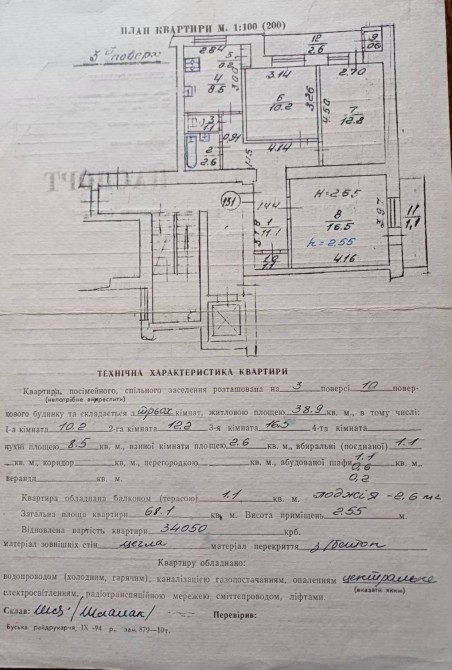 ПЛАН КВАРТИРИ М. 1:100 (200)
3й поверх
2.64
5
0.2
4
8.5
3.00
12
2.6
9
0.6
3.14
6
10.2
3.26
2.70
4.50
7
12.8
3
1.1
2
2.6
0.91
4.14
1.15
131
1.44
1
11.1
3.18
10
1.1
H=2.55
8
16.5
h=2.55
4.16
3.97
11
1.1
ТЕХНІЧНА ХАРАКТЕРИСТИКА КВАРТИРИ
Квартира, посімейного, спільного заселення розташована на 3 поверсі 10 повер-
(непотрібне викреслити)
хового будинку та складається з трьох кімнат, житловою площею 38.9 кв. м., в тому числі:
1-а кімната 10.2 2-га кімната 12.2 3-я кімната 16.5 4-та кімната
кухні площею 8.5 кв. м., ванної кімнати площею 2.6 кв. м., вбиральні (поєднаної) 1.1
кв. м., коридор кв. м., перегородкою кв. м., вбудованої шафи 1.1 0,6 кв. м.,
веранди кв. м. 0,2
Квартира обладнана балконом (терасою) 1.1 кв. м. лоджія - 2.6 м2
Загальна площа квартири 68.1 кв. м. Висота приміщень 2.55 м
Відновлена вартість квартири 34050 крб.
матеріал зовнішніх стін цегла матеріал перекриття з/бетон
Квартиру обладнано:
водопроводом (холодним, гарячим), каналізацією газопостачанням, опаленням центральне
(вказати яким)
електроосвітленням, радіотрансляційною мережею, сміттєпроводом, ліфтами.
Склав: Перевірив:
Буська райдрукарня, IX -94 р., зам 879—10т.